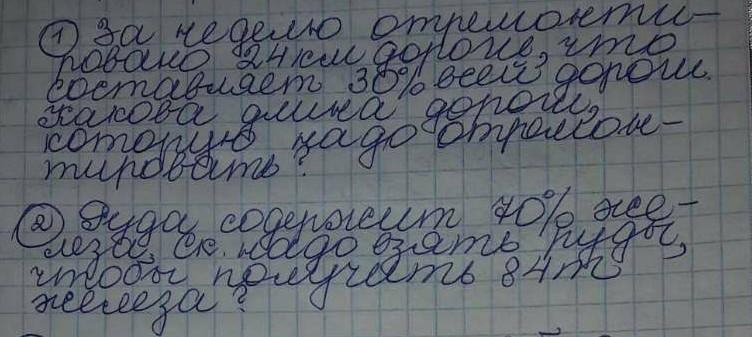 ① За неделю отремонти-
ровано 24 км дороги, что
составляет 30% всей дороги.
Какова длина дороги,
которую надо отремон-
тировать?
② Руда содержит 70% же-
леза, ск. надо взять руды,
чтобы получить 84т
железа?